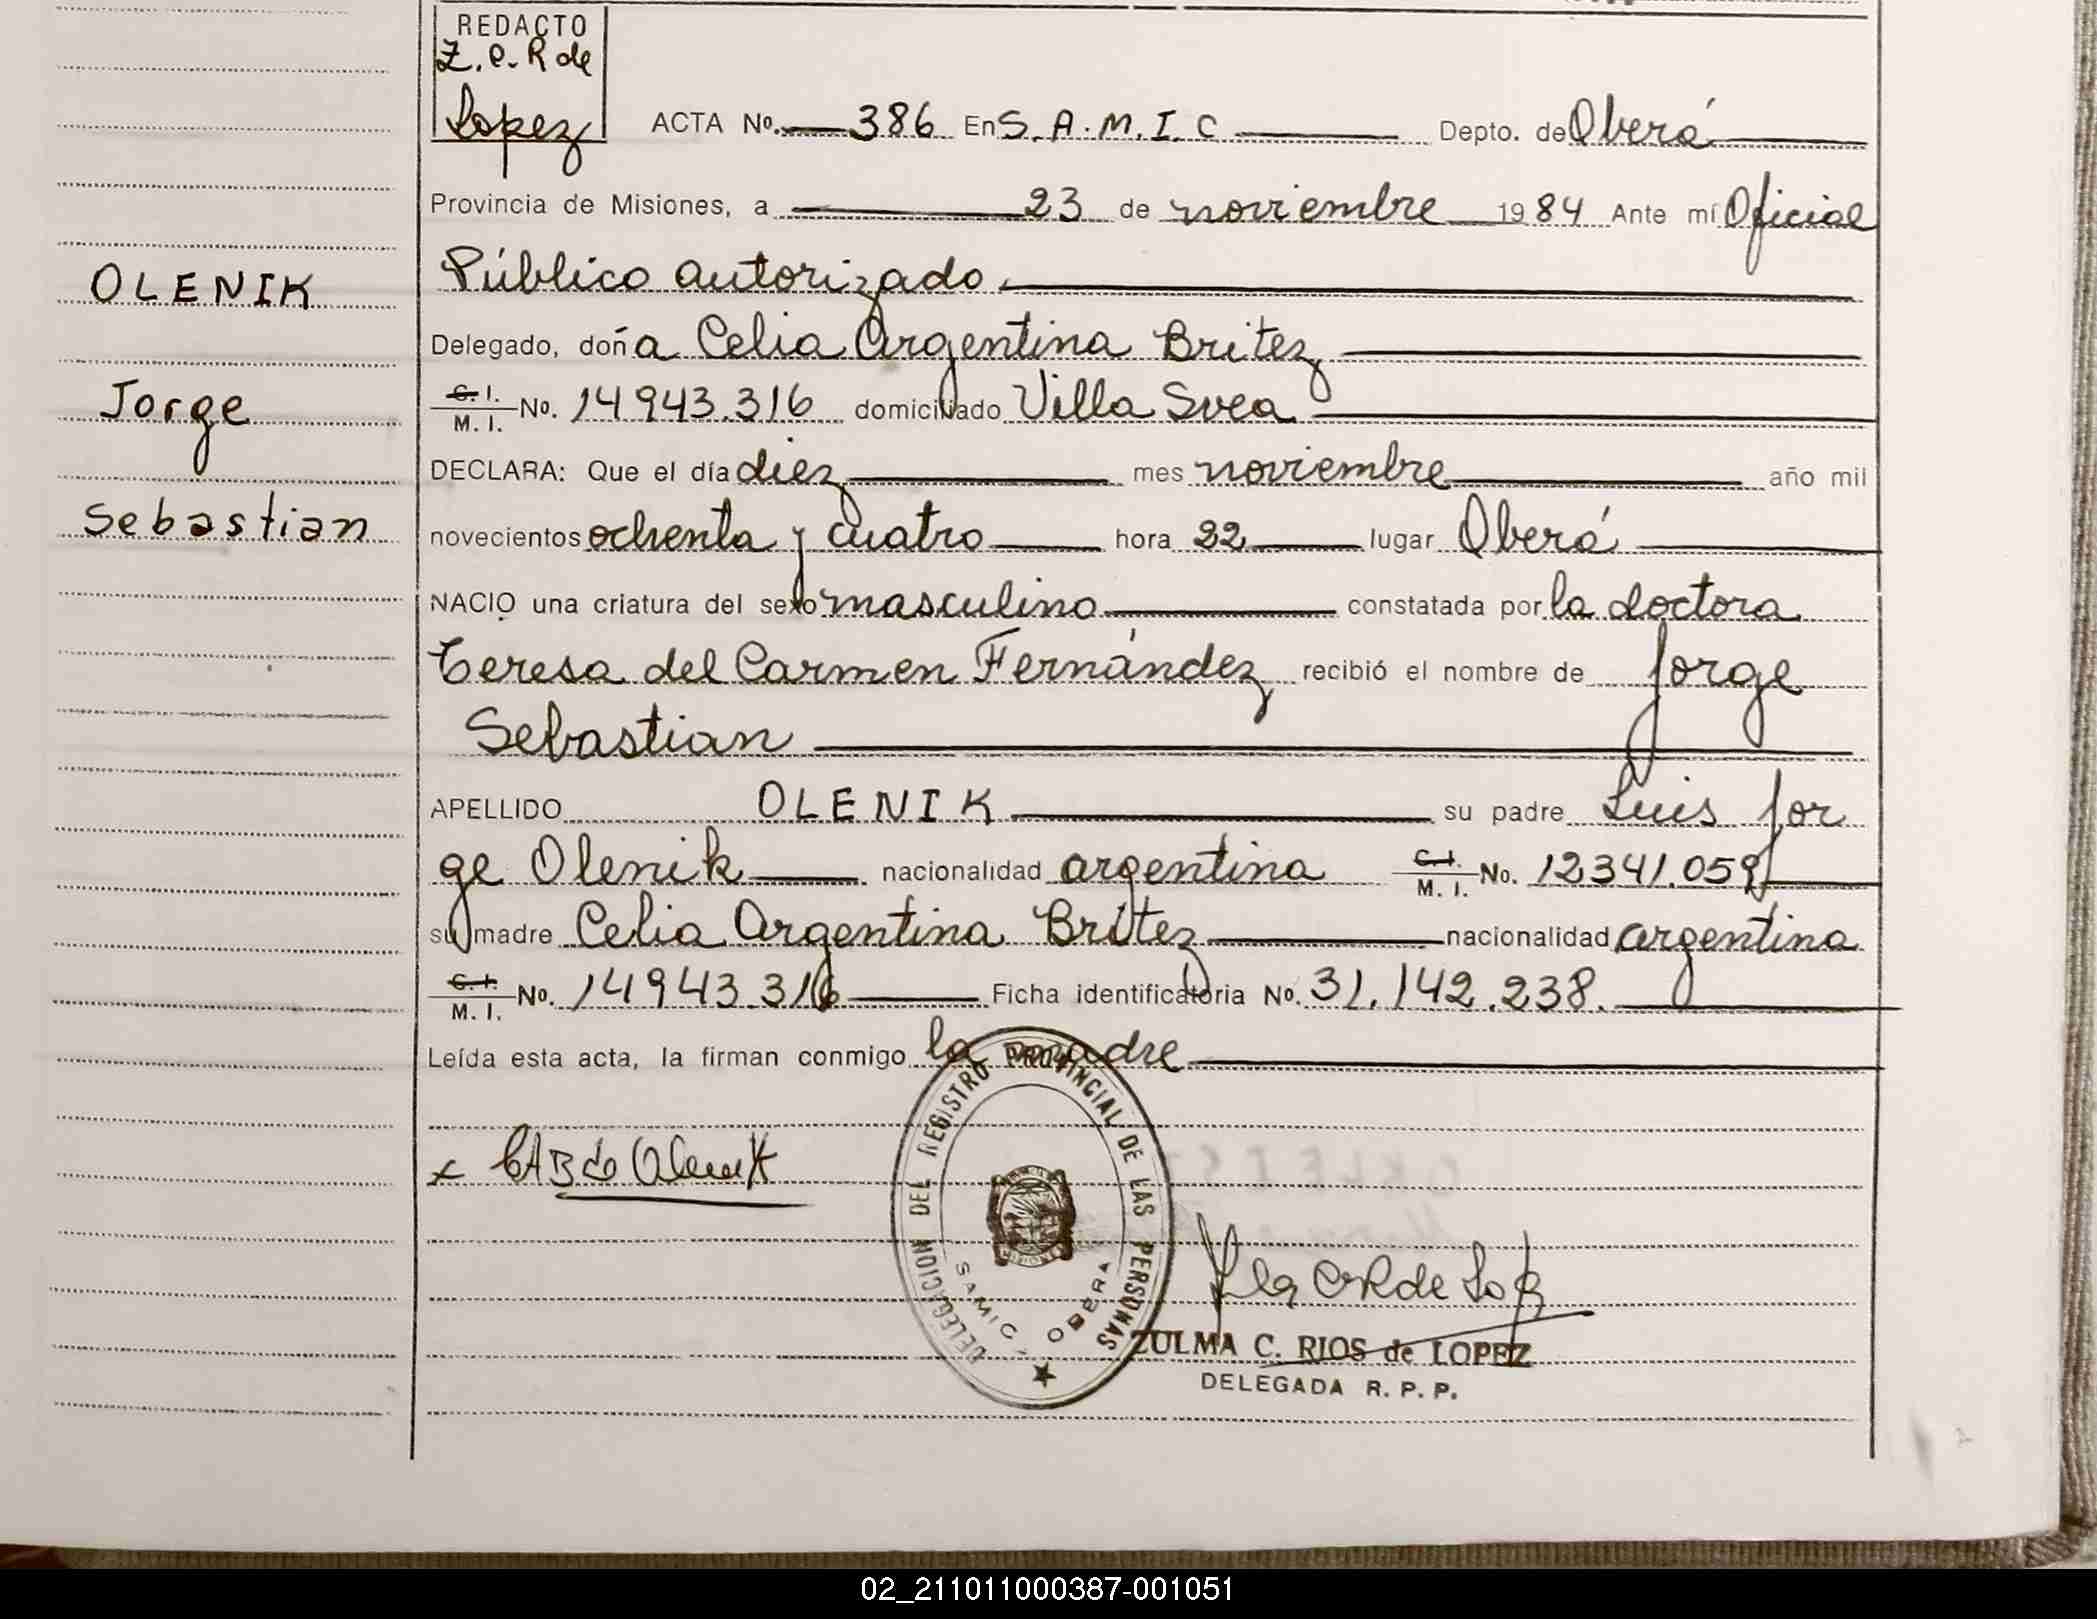 REDACTO
Z. C. R de
Lopez
ACTA No. 386 En S. A. M. I. C Depto. de Oberá
Provincia de Misiones, a 23 de noviembre 1984 Ante mí Oficial
Público autorizado.
Delegado, doña Celia Argentina Britez
C. I. / M. I. No. 14943.316 domiciliado Villa Svea
DECLARA: Que el día diez mes noviembre año mil
novecientos ochenta y cuatro hora 22 lugar Oberá
NACIO una criatura del sexo masculino constatada por la doctora
Teresa del Carmen Fernández recibió el nombre de Jorge
Sebastian
APELLIDO OLENIK su padre Luis Jor
ge Olenik nacionalidad argentina C. I. / M. I. No. 12341.059
su madre Celia Argentina Britez nacionalidad argentina
C. I. / M. I. No. 14943.316 Ficha identificatoria No. 31.142.238.
Leída esta acta, la firman conmigo la madre
OLENIK
Jorge
Sebastian
x CAB de Olenik
DELEGACION DEL REGISTRO PROVINCIAL DE LAS PERSONAS
SAMIC - OBERA
ZULMA C. RIOS de LOPEZ
DELEGADA R. P. P.
02_211011000387-001051